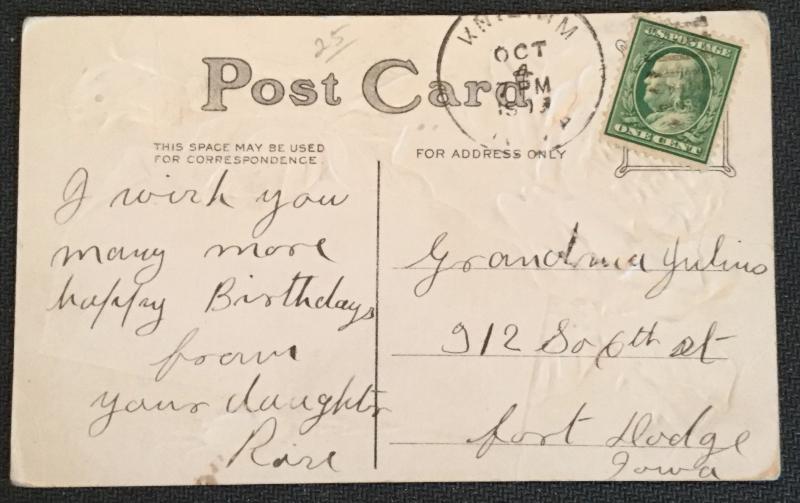 25
Post Card
OCT
4
PM
THIS SPACE MAY BE USED
FOR CORRESPONDENCE
FOR ADDRESS ONLY
U.S. POSTAGE
ONE CENT
I wish you
many more
happy Birthdays
from
your daughter
Rose
Grandma Julius
912 So 6th st
fort Dodge
Iowa